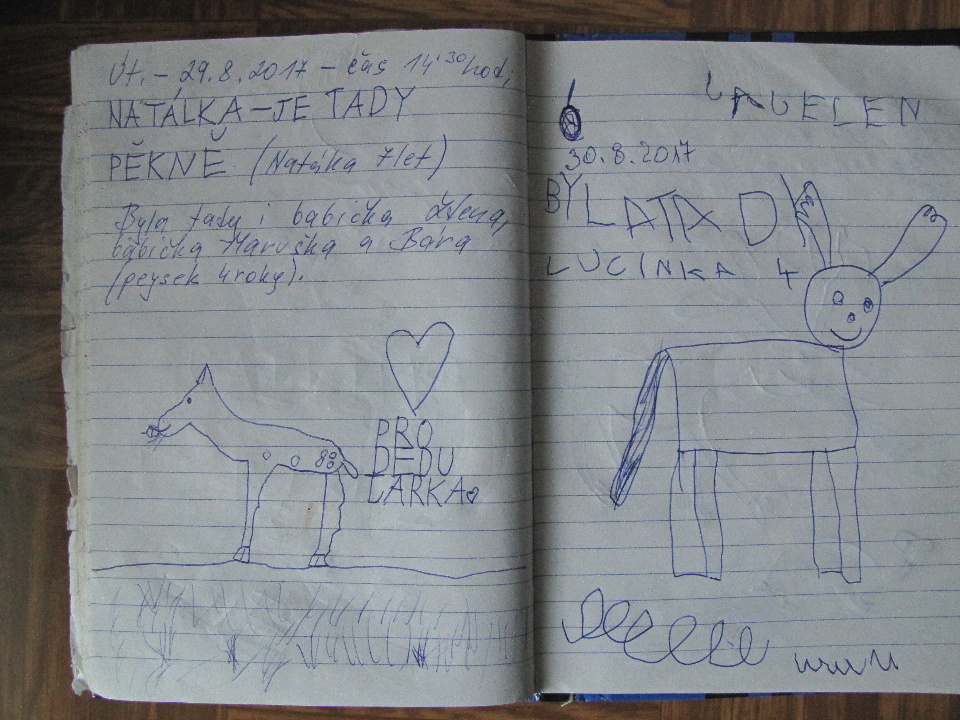 Út. - 29.8.2017 - čas 14³⁰ hod,
NATÁLKA-JE TADY
PĚKNĚ (Natálka 7let)
Byla tady i babička
babička Maruška a Bára
(pejsek 4roky).
PRO
DĚDU
LARKA
LAUELEN
30.8.2017
BÝLATAD
LUCINKA 4